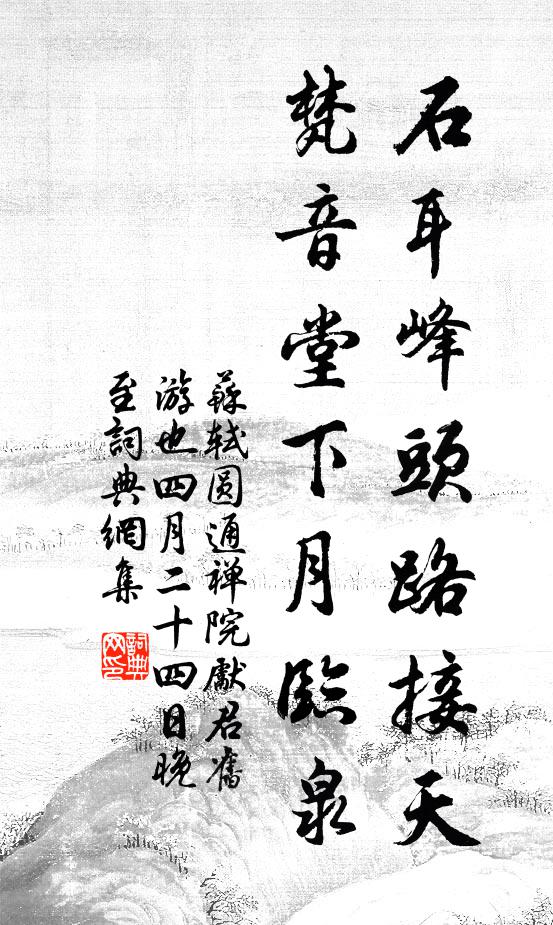 石耳峰頭路接天
梵音堂下月臨泉
蘇軾圆通禅院獻君舊
游也四月二十四日晚
至詞典網集
詞典网印